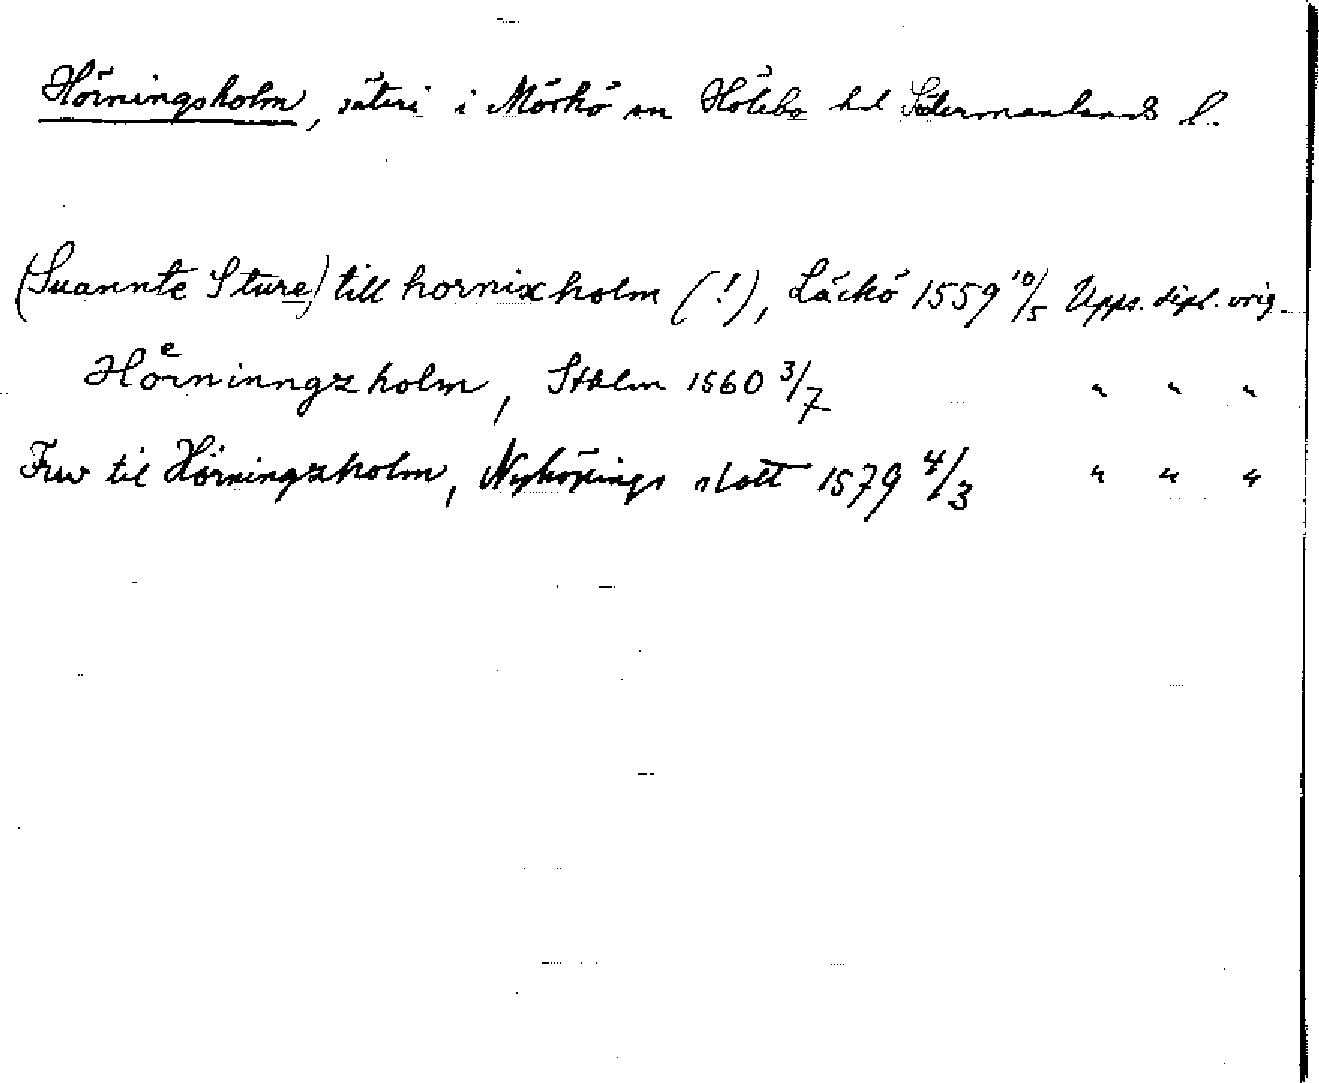 Hörningsholm, säteri i Mörkö sn Hölebo hd Södermanlands l.
(Suannte Sture) till hornixholm (!), Läckö 1559 10/5 Upps. dipl. orig.
Hoͤrninngzholm, Sthlm 1560 3/7 " " "
Frw til Hörningzholm, Nyköpings slott 1579 4/3 " " "